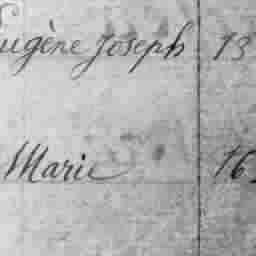 Eugène Joseph 13
Marie 16